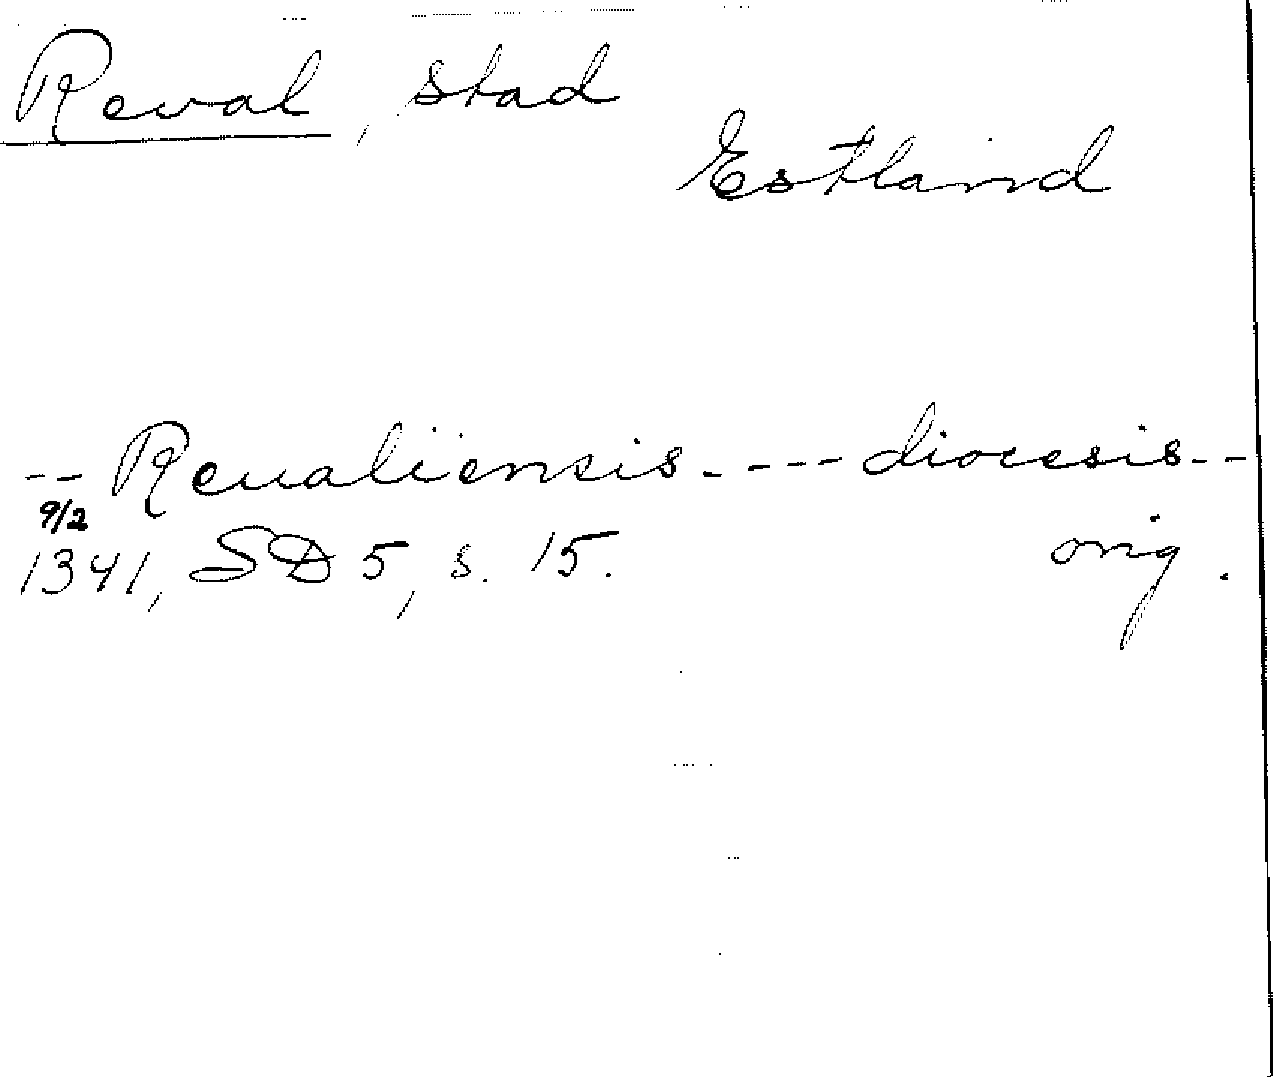 Reval, stad
Estland
-- Reualiensis ---- diocesis --
9/2
1341, SD 5, s. 15. orig.